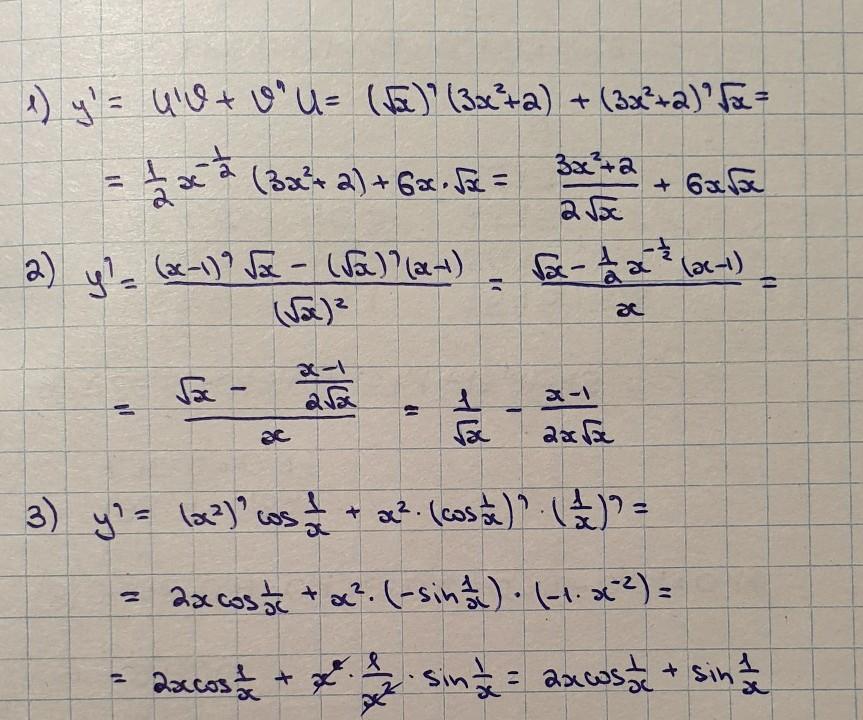 1) y' = u'ϑ + ϑ'u = (√x)'(3x²+2) + (3x²+2)'√x =
= 1/2 x^(-1/2) (3x²+2) + 6x·√x = (3x²+2)/(2√x) + 6x√x
2) y' = ((x-1)'√x - (√x)'(x-1))/(√x)² = (√x - 1/2 x^(-1/2) (x-1))/x =
= (√x - (x-1)/(2√x))/x = 1/√x - (x-1)/(2x√x)
3) y' = (x²)' cos 1/x + x²·(cos 1/x)'·(1/x)' =
= 2x cos 1/x + x²·(-sin 1/x)·(-1·x⁻²) =
= 2x cos 1/x + x²·1/x²·sin 1/x = 2x cos 1/x + sin 1/x